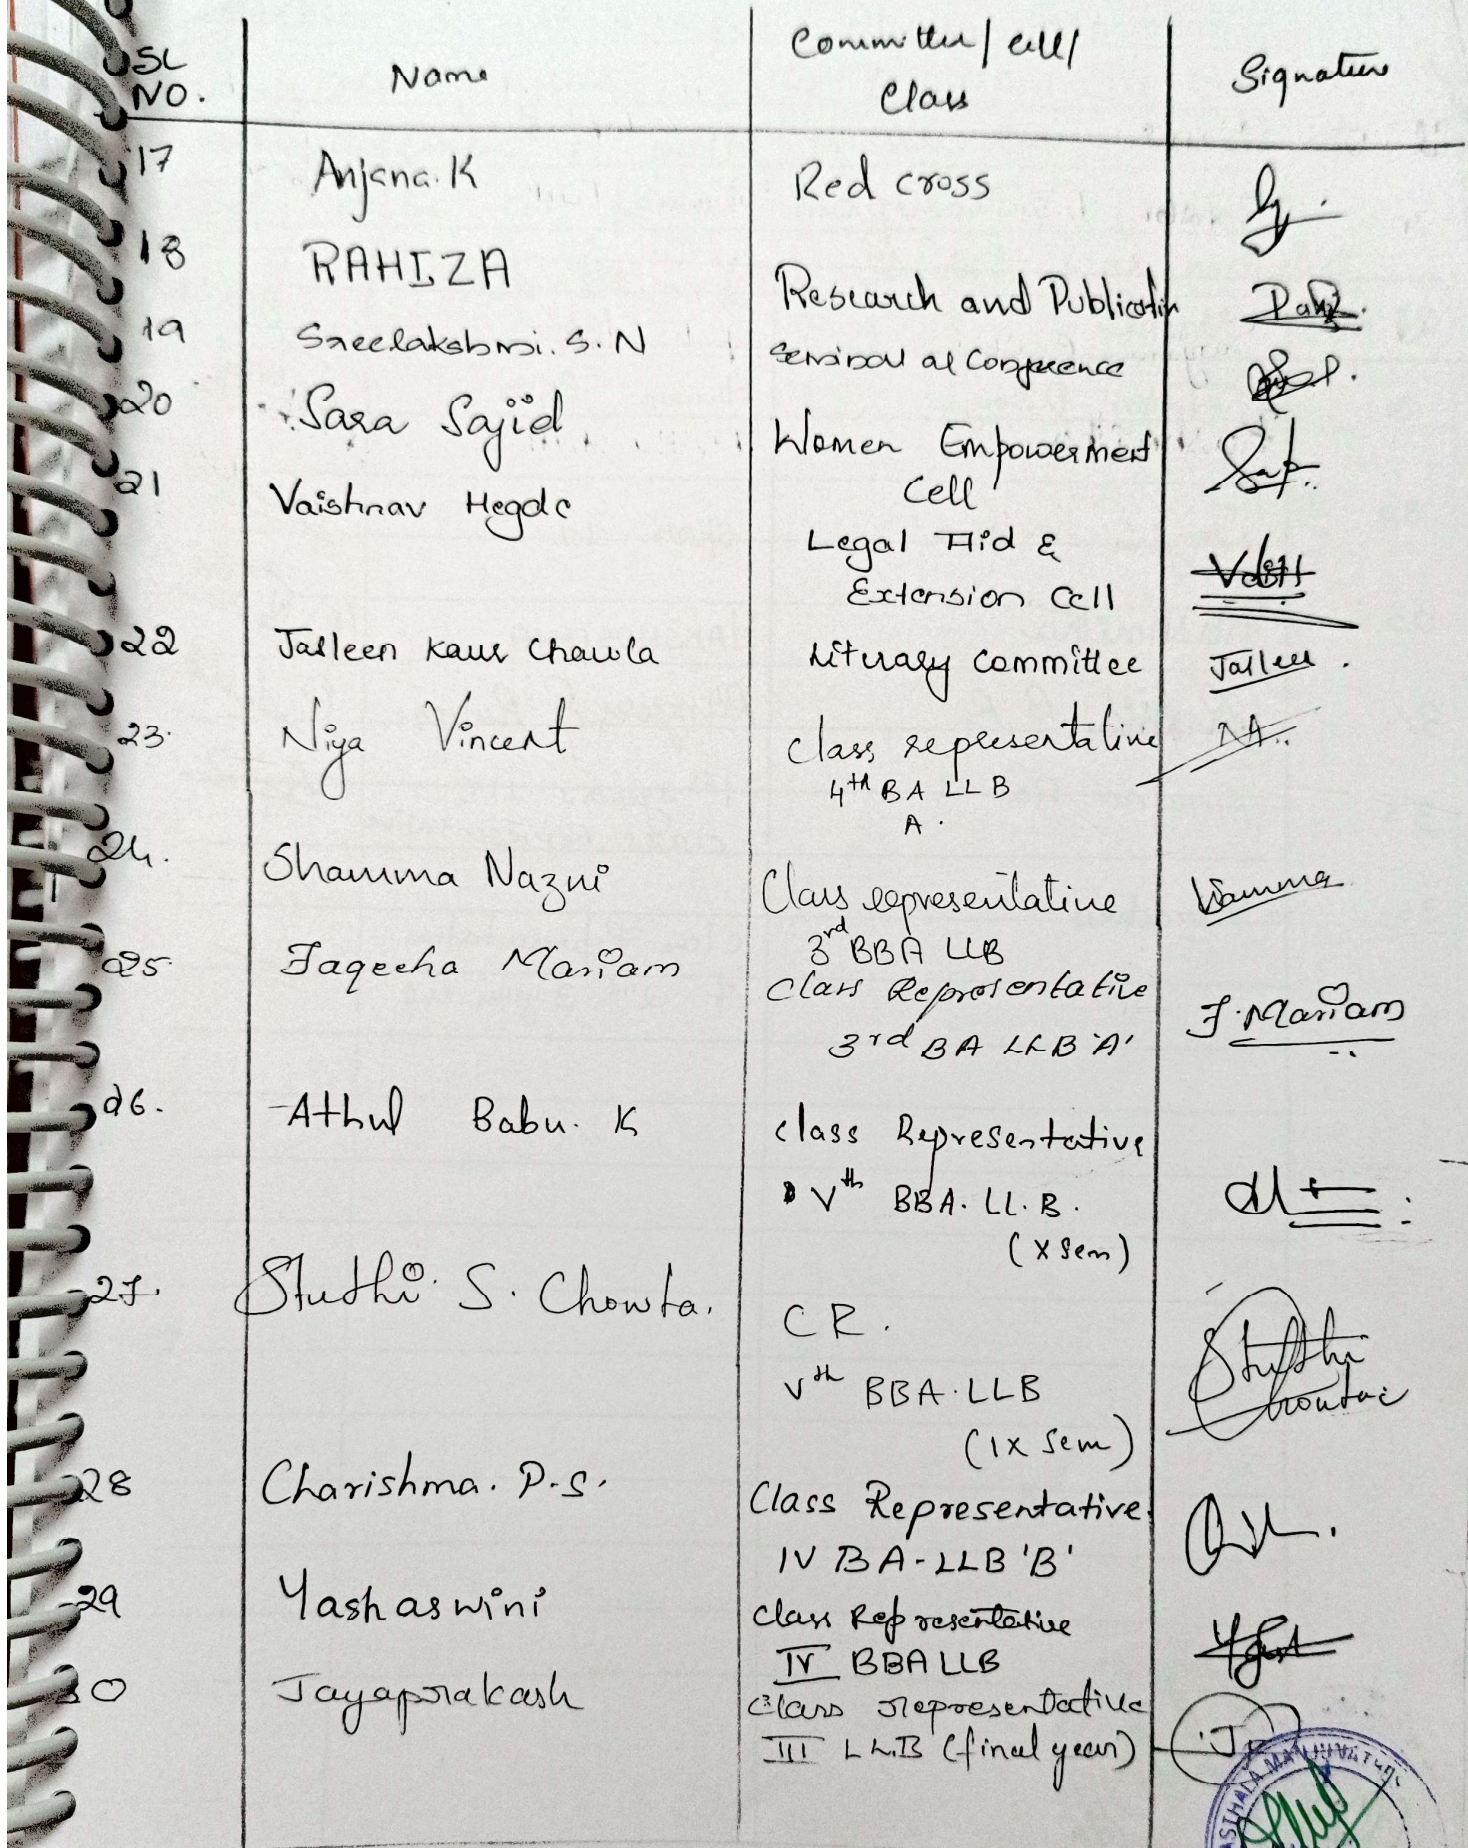 SL NO. Name Committee/cell/ Class Signature
17 Anjana. K Red cross
18 RAHIZA Research and Publication
19 Sreelakshmi. S. N Seminar al Conference
20 Sara Sajid Women Empowerment
Cell
21 Vaishnav Hegde Legal Aid &
Extension Cell
22 Jasleen Kaur Chawla Literary Committee
23. Niya Vincent Class representative
4th BA LL B
A.
24. Shamma Nazni Class representative Shamma
3rd BBA LLB
25. Faqeeha Mariam Class Representative F. Mariam
3rd BA LLB 'A'
26. Athul Babu. K Class Representative
Vth BBA. LL. B.
(X Sem)
27. Stuthi S. Chowta. CR. Stuthi
Chowta
Vth BBA. LLB
(IX Sem)
28 Charishma. P.S. Class Representative
IV BA-LLB 'B'
29 Yashaswini Class Representative
IV BBA LLB
30 Jayaprakash Class representative
III LL.B (final year)